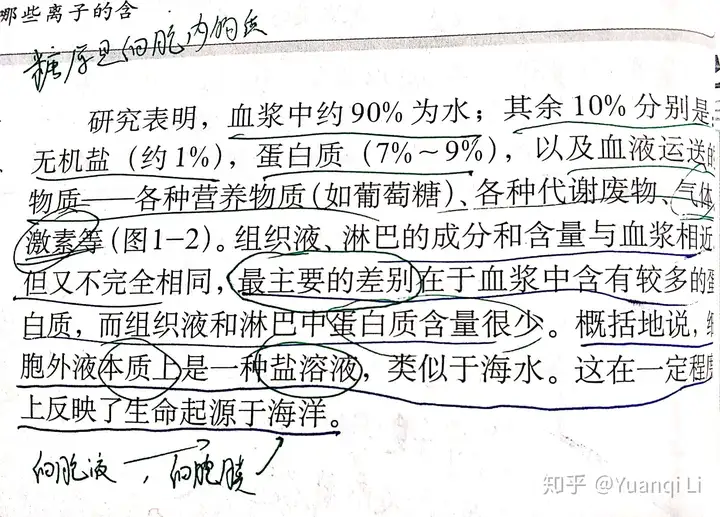 哪些离子的含
糖原是细胞内物质
研究表明，血浆中约90%为水；其余10%分别是：
无机盐（约1%），蛋白质（7%～9%），以及血液运送的
物质——各种营养物质（如葡萄糖）、各种代谢废物、气体
激素等（图1-2）。组织液、淋巴的成分和含量与血浆相近
但又不完全相同，最主要的差别在于血浆中含有较多的蛋
白质，而组织液和淋巴中蛋白质含量很少。概括地说，细
胞外液本质上是一种盐溶液，类似于海水。这在一定程度
上反映了生命起源于海洋。
细胞液，细胞膜
知乎 @Yuanqi Li